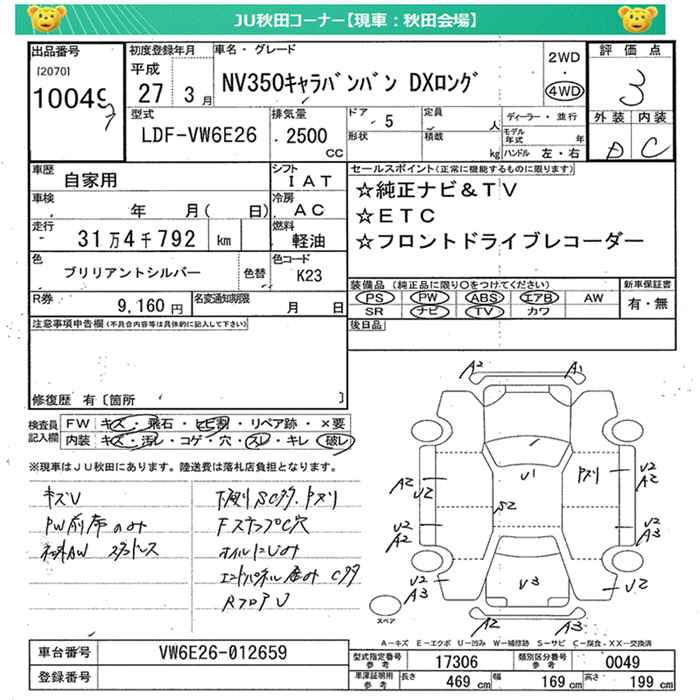 JU秋田コーナー【現車：秋田会場】
出品番号
[2070]
10049
初度登録年月
平成
27 3月
車名・グレード
NV350キャラバンバン DXロング
2WD
・
4WD
評価点
3
外装 内装
D C
型式
LDF-VW6E26
排気量
2500
CC
ドア
5
形状
定員
人
積載
kg
ディーラー・並行
モデル年式
年
ハンドル 左・右
車歴
自家用
シフト
IAT
車検
年 月( 日)
冷房
AC
走行
31万4千792
km
燃料
軽油
色
ブリリアントシルバー
色替
色コード
K23
R券
9,160円
名変通知期限
月 日
セールスポイント(正常に機能するものに限ります)
☆純正ナビ&TV
☆ETC
☆フロントドライブレコーダー
装備品 (純正品に限り○をつけてください)
PS PW ABS エアB AW
SR ナビ TV カワ
新車保証書
有・無
後日品
注意事項申告欄(不具合内容等は具体的に記入して下さい)
修復歴 有〔箇所 〕
検査員記入欄
FW キズ・飛石・ヒビ割・リペア跡・×要
内装 キズ・汚レ・コゲ・穴・スレ・キレ・破レ
※現車はJU秋田にあります。陸送費は落札店負担となります。
キズV
PW前席のみ
社外AW スタッドレス
下廻りSCサク、トスリ
FステップC穴
オイルにじみ
エンドパネル歪み Cサク
RフロアV
A2 A1
V1
トスリ
A2
V2
V2
S2
V2
A2
V2
A3
V2
A2
V2
A3
V3
V2
A2 A3
スペア
A-キズ E-エクボ U-凹み W-補修跡 S-サビ C-腐食・XX-交換済
車台番号
VW6E26-012659
登録番号
型式指定番号
参考
17306
類別区分番号
参考
0049
車庫証明用
参考
長さ
469 cm
幅
169 cm
高さ
199 cm